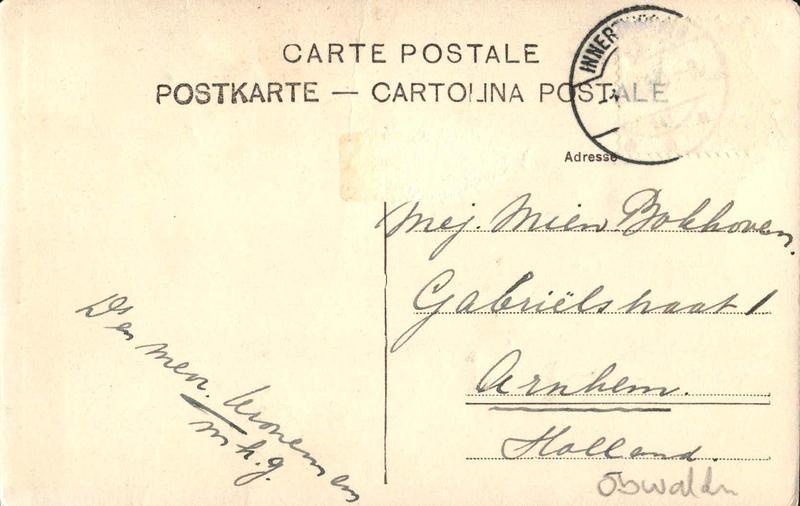 CARTE POSTALE
POSTKARTE — CARTOLINA POSTALE
INNERT
Adresse
Mej. Mien Bokhoven.
Gabriëlstraat 1
Arnhem.
Holland.
Obwalden
en mevr.
m h. g.